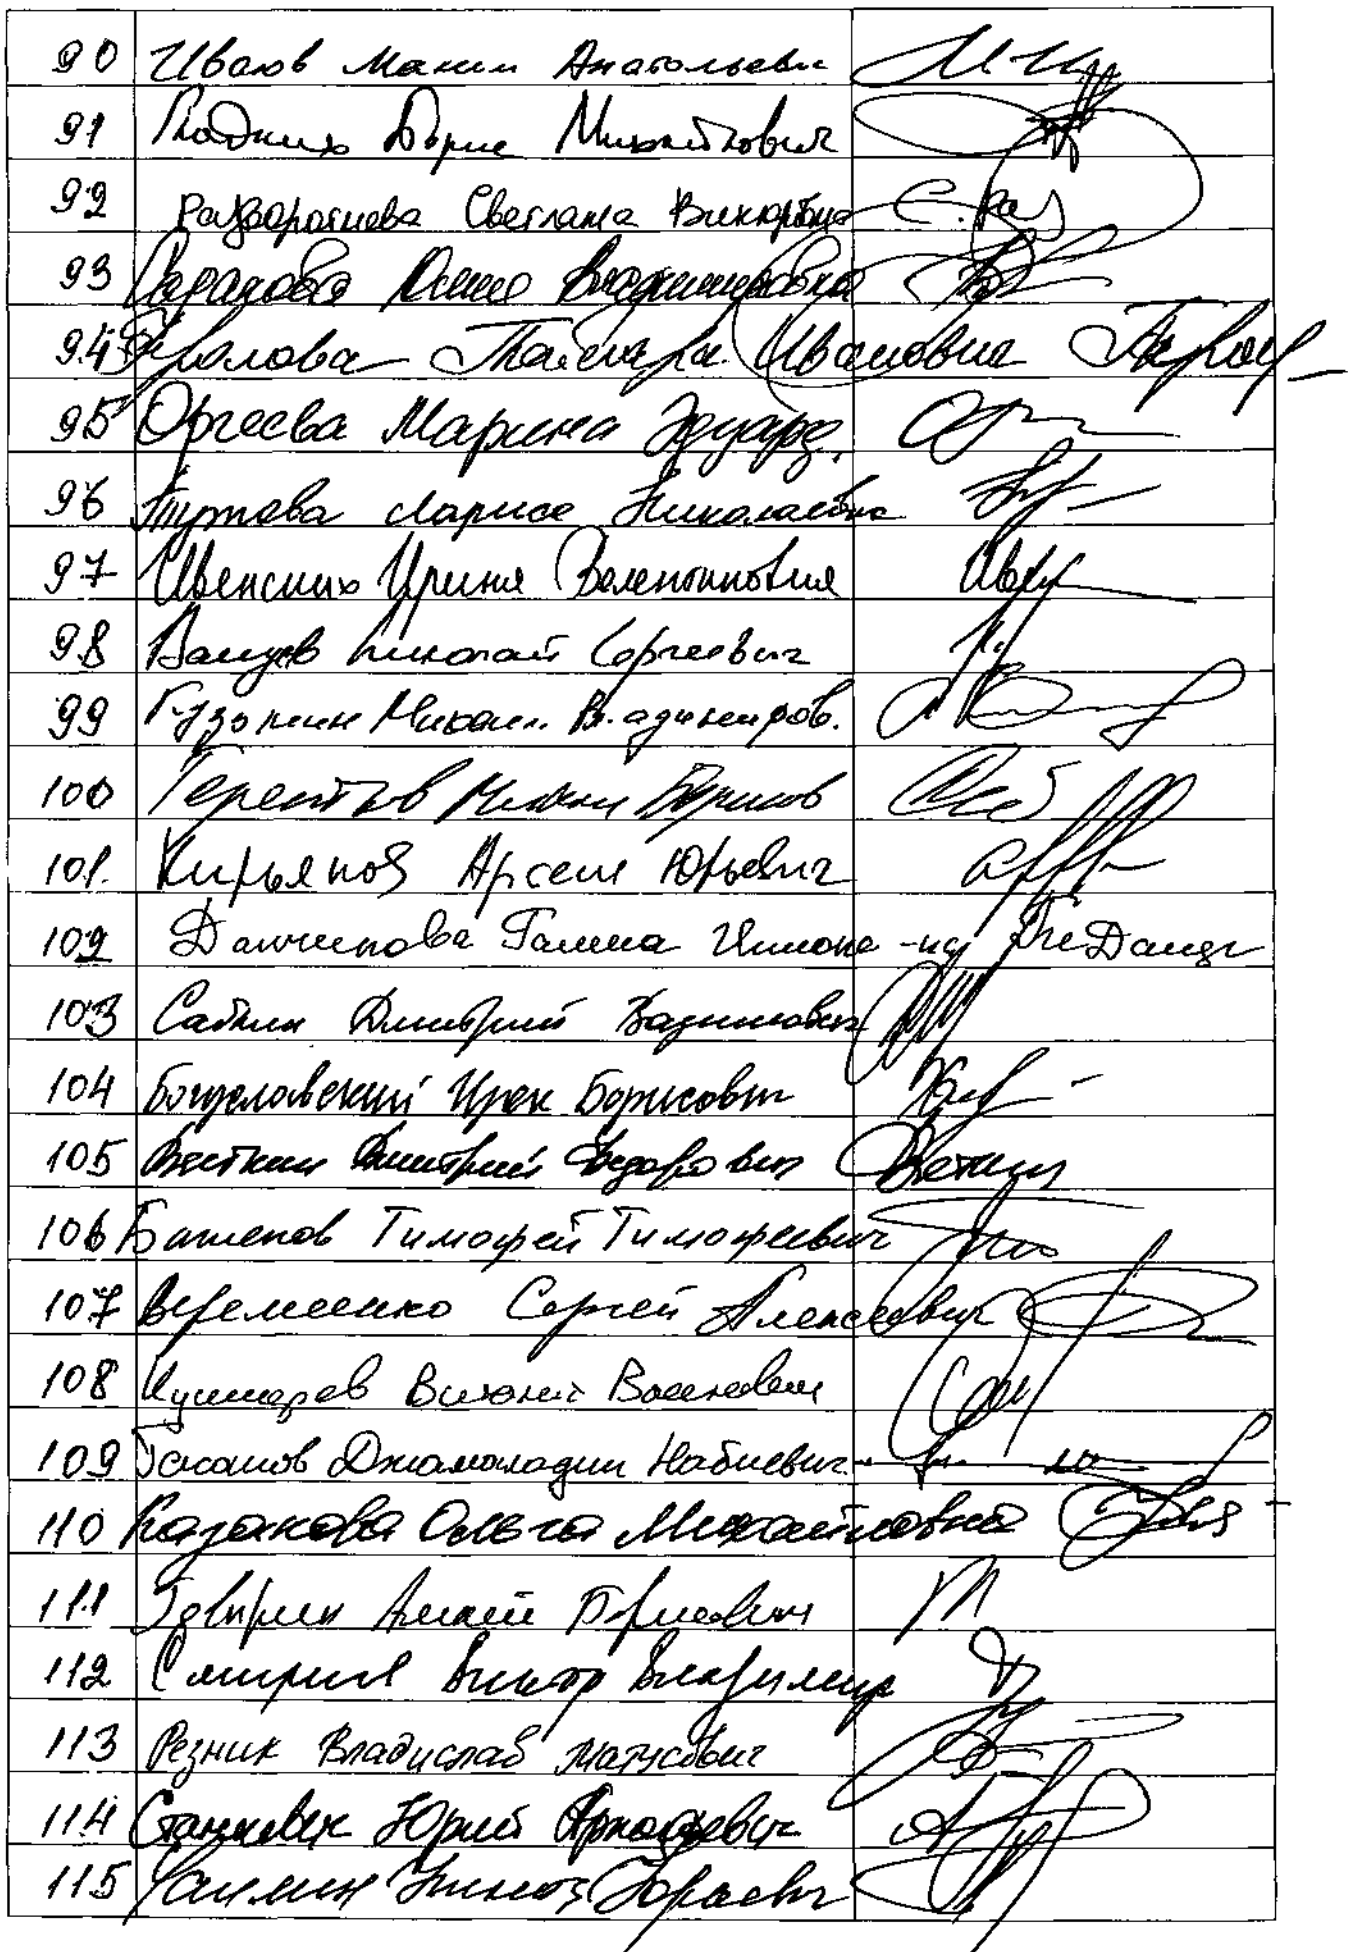 90 Иванов Максим Анатольеви
91 Гладких Борис Михайлович
92 Разворотнева Светлана Викторовна
93 Юлия Владимировна
94 Фролова Тамара Ивановна
95 Оргеева Марина Эдуард.
96 Тутова Лариса Николаевна
97 Ивенских Ирина Валентиновна
98 Валуев Николай Сергеевич
99 Гузон Михаил Владимиров.
100 Терентьев Михаил Борисов
101. Кирьянов Арсен Юрьевич
102 Данчикова Галина Иннокен-на ГиДанч
103 Саблин Дмитрий Вадимович
104 Богуславский Ирек Борисович
105 Вяткин Дмитрий Федорович
106 Баженов Тимофей Тимофеевич
107 Веремеенко Сергей Алексеевич
108 Васильевич
109 Гасанов Джамаладин Набиевич
110 Казакова Ольга Михайловна
111 Гаврин Алексей Борисович
112 Смирнов Виктор Владимир
113 Резник Владислав Матусович
114 Станкевич Юрий Аркадьевич
115 Юрьевич